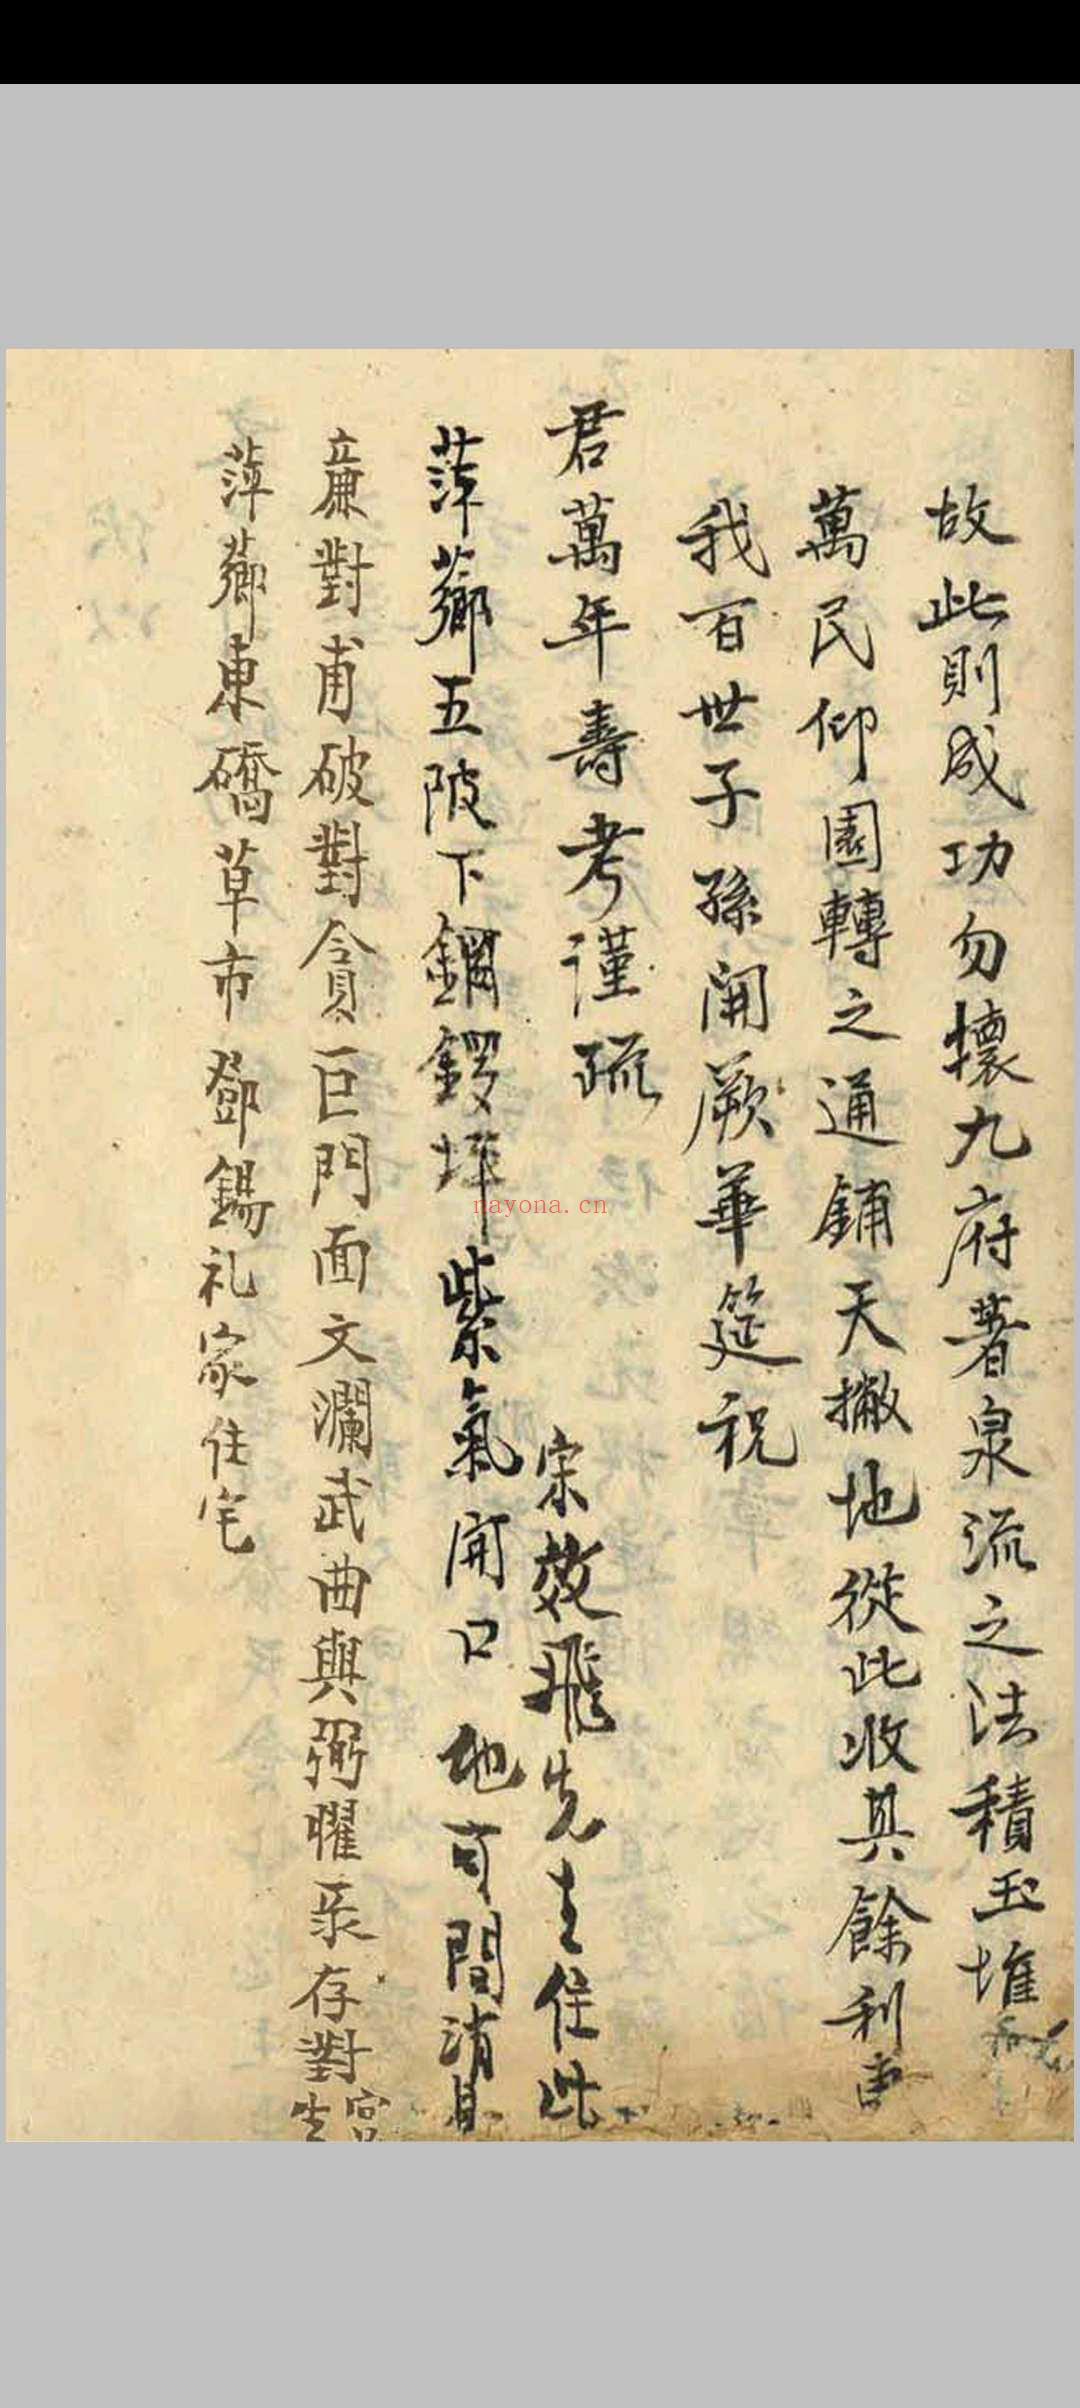 故此則成功勿壞九府著泉流之法積玉堆
萬民仰圜轉之通鋪天撇地從此收其餘利
我百世子孫開厥華筵祝
君萬年壽考謹疏
宋效飛先生住此
萍薌五陂下鍋鑼坪紫氣開口地可間消息
亷對甫破對貪巨門面文瀾武曲與弼耀泵存對
萍薌東礄草市鄧錫礼家住宅
nayona.cn